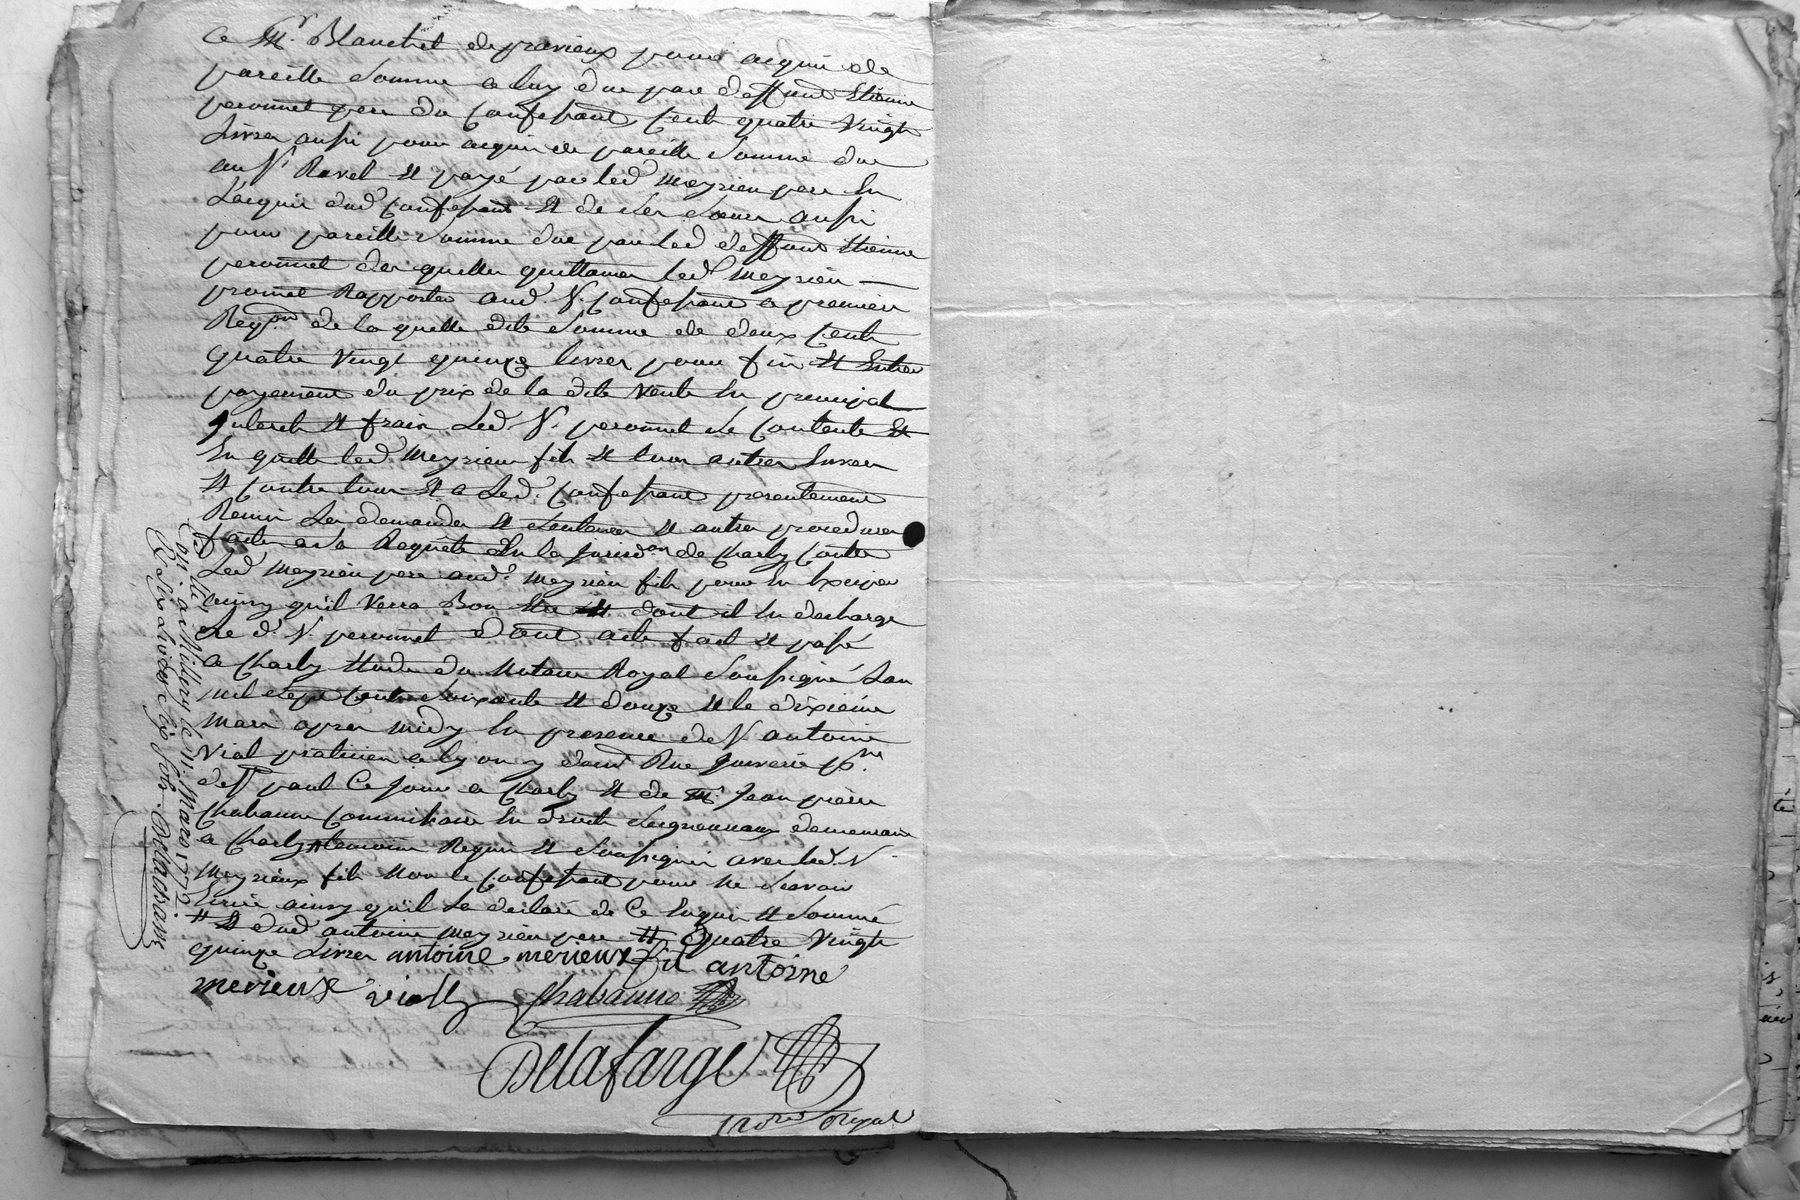 a Mr. Blanchet de pravieux pour acquit de
pareille somme a luy due par deffunt Etienne
peronnet pere du Confessant, Cent quatre vingt
Livres aussi pour acquit de pareille somme due
au Sr Ravel et payé par led. Meyrieu pere En
L'acquit dud. Confessant et de ses soeurs aussi
pour pareille somme due par led deffunt Etienne
peronnet des quelles quittances led. Meyrieu
promet Rapporter aud. S. Confessant a premiere
Reqon de la quelle dite somme de deux Cent
quatre vingt quinze livres pour fin et Entier
payement du prix de la dite vente En principal
Interest et frais Led. S. peronnet se Contente et
En quitte led. Meyrieu fils et tous autres Envers
et Contre tous et a Led. Confessant presentement
Remis les demandes et sentences et autres procedures
faites a sa Requête En la jurison de Charly Contre
Led Meyrieu pere aud. Meyrieu fils pour En Exciper
ainsy qu'il verra Bon Etre et dont il En decharge
Le d. S. peronnet dont acte fait et passé
a Charly Etude du Notaire Royal soussigné Lan
mil sept Cent soixante et douze et le dixieme
mars apres midy En presence de S. antoine
Vial praticien a lyon y demt Rue
de St paul Ce jour a Charly et de Mr. Jean pierre
Chabanne Commissaire En droits seigneuriaux demeurant
a Charly temoins Requis et soussignés avec led. S.
Meyrieux fils Non le Confessant pour ne scavoir
Ecrire ainsy qu'il La declaré de Ce Enquis et sommé
# et dud antoine meyrieu pere # Quatre Vingt
quinze Livres antoine merieux fil antoine
merieux vially Chabanne
Delafarge
Nore Royal
Collé
a Millery le 11. Mars 1772.